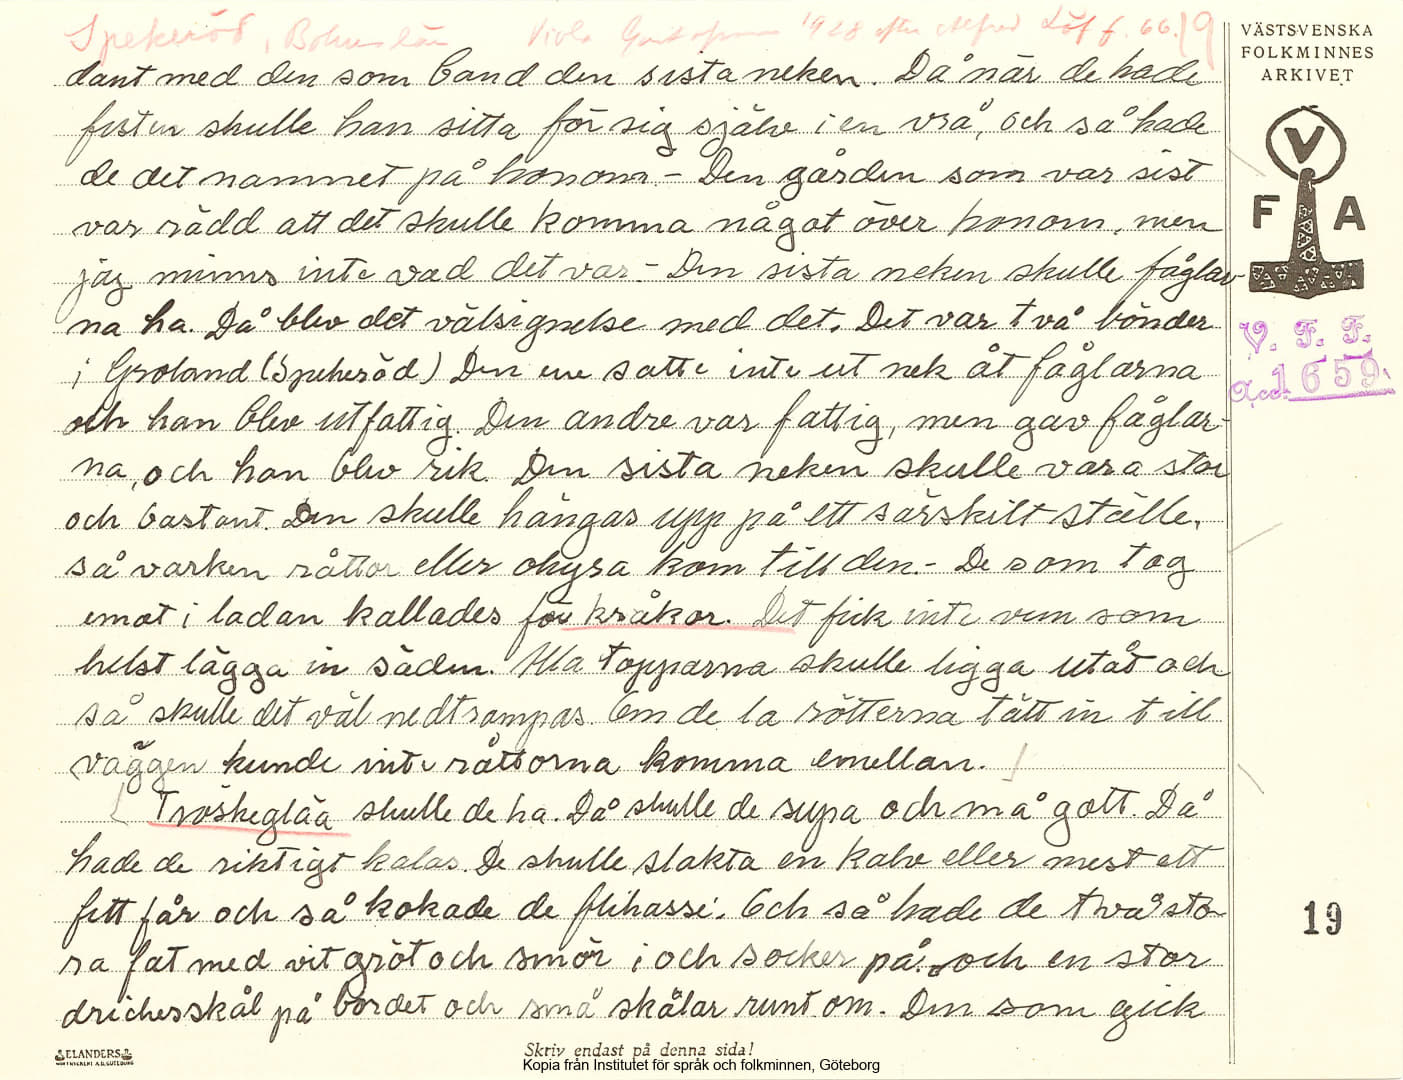 Spekeröd, Bohuslän Viola Gustafsson 1928 efter Alfred Löf f. 66. 19
dant med den som band den sista neken. Då när de hade
festen skulle han sitta för sig själv i en vrå, och så hade
de det nammet på honom. – Den gården som var sist
var rädd att det skulle komma något över honom, men
jag minns inte vad det var – Den sista neken skulle fåglar-
na ha. Då blev det välsignelse med det. Det var två bönder
i Groland (Spekeröd) Den ene satte inte ut nek åt fåglarna
och han blev utfattig. Den andre var fattig, men gav fåglar-
na, och han blev rik. Den sista neken skulle vara stor
och bastant. Den skulle hängas upp på ett särskilt ställe,
så varken råttor eller ohyra kom till den. – De som tog
emot i ladan kallades för kråkor. Det fick inte vem som
helst lägga in säden. Alla topparna skulle ligga utåt och
så skulle det väl nedtrampas. Om de la rötterna tätt in till
väggen kunde inte råttorna komma emellan.
Tröskegläa skulle de ha. Då skulle de supa och må gott. Då
hade de riktigt kalas. De skulle slakta en kalv eller mest ett
fett får och så kokade de flihassi. Och så hade de två sto-
ra fat med vit gröt och smör i och socker på. och en stor
drickesskål på bordet och små skålar runt om. Den som gick
VÄSTSVENSKA
FOLKMINNES
ARKIVET
V
F A
V. F. F.
Acc. 1659.
19
ELANDERS
Skriv endast på denna sida!
Kopia från Institutet för språk och folkminnen, Göteborg